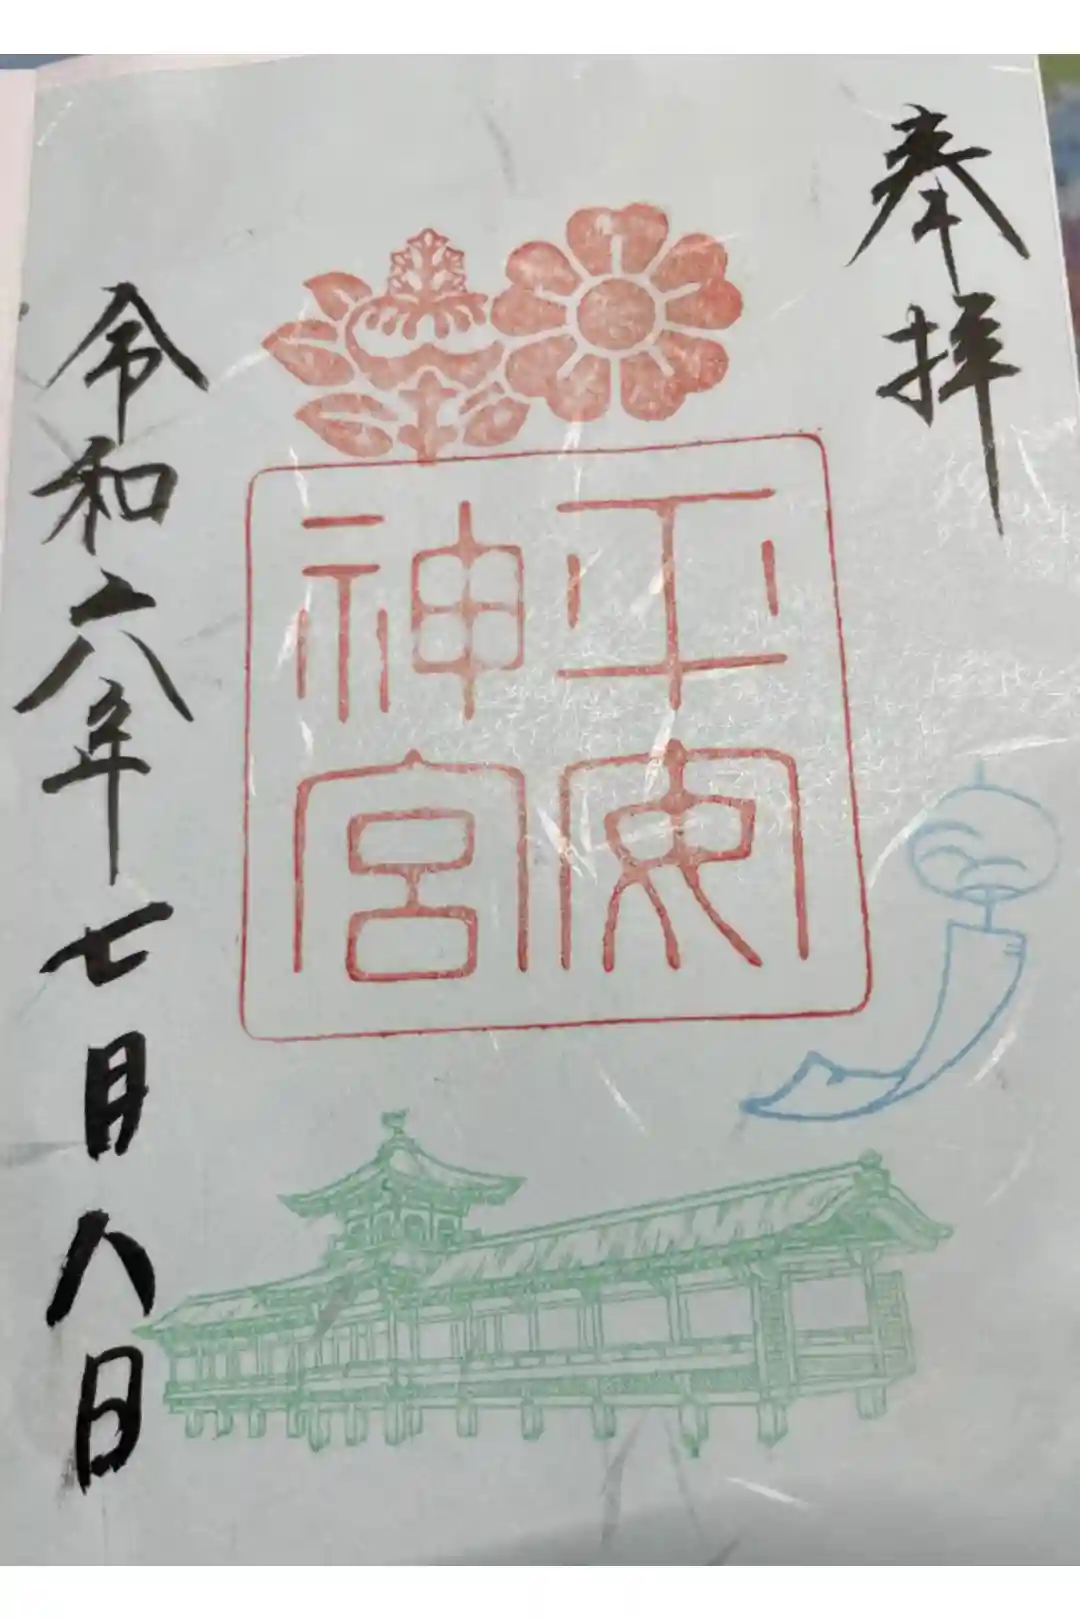 奉拝
平安
神宮
令和六年七月八日